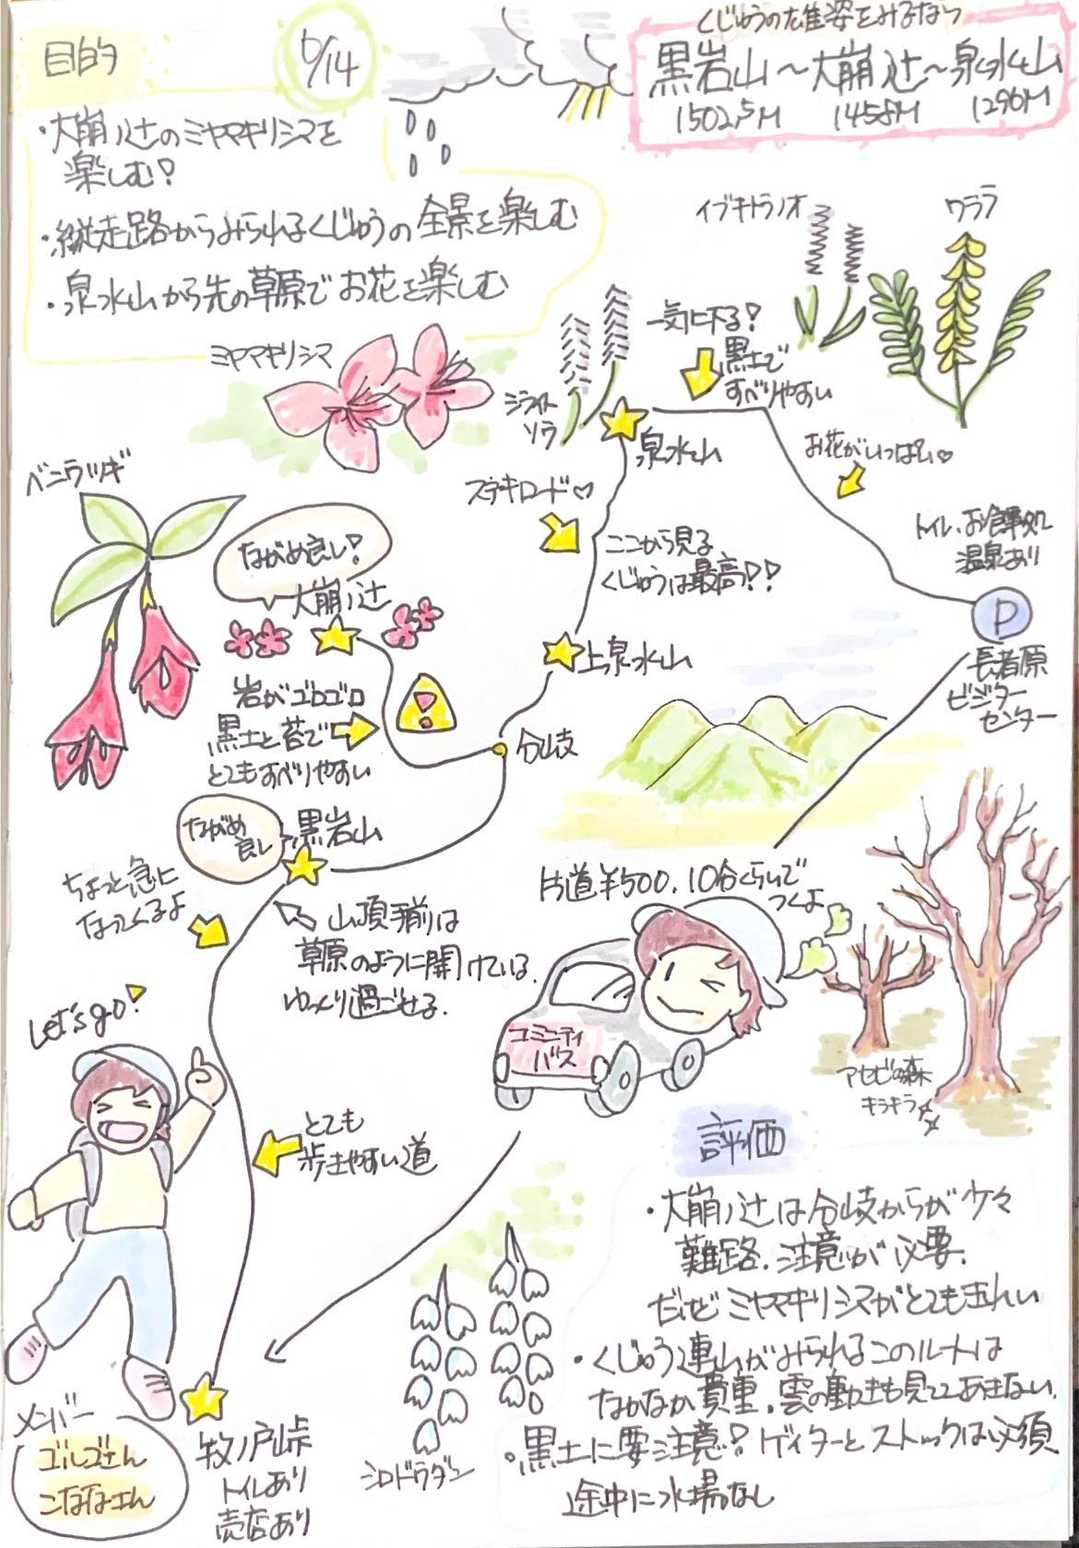 目的
6/14
くじゅうの雄姿をみるなら
黒岩山～大崩ノ辻～泉水山
1502.5M 1458M 1296M
・大崩ノ辻のミヤマキリシマを
楽しむ!
・縦走路からみられるくじゅうの全景を楽しむ
・泉水山から先の草原でお花を楽しむ
ミヤマキリシマ
イブキトラノオ
ワララ
一気に下る!
黒土で
すべりやすい
ジライト
ソウ
泉水山
お花がいっぱい♡
ベニウツギ
ステキロード♡
ここから見る
くじゅうは最高!!
トイレ、お食事処
温泉あり
P
長者原
ビジター
センター
ながめ良し!
大崩ノ辻
上泉水山
岩がゴロゴロ
黒土と苔で
とてもすべりやすい
!
分岐
ながめ
良し
黒岩山
ちょっと急に
なってくるよ
山頂手前は
草原のように開けている。
ゆっくり過ごせる。
片道¥500、10分くらいで
つくよ
コミニティ
バス
Let's go!
アセビの森
キラキラ
とても
歩きやすい道
評価
・大崩ノ辻は分岐からが少々
難路。注意が必要。
だけどミヤマキリシマがとてもきれい
・くじゅう連山がみられるこのルートは
なかなか貴重。雲の動きも見ててあきない。
・黒土に要注意!ゲイターとストックは必須
途中に水場なし
メンバー
ゴルゴさん
こななさん
牧ノ戸峠
トイレあり
売店あり
シロドウダン